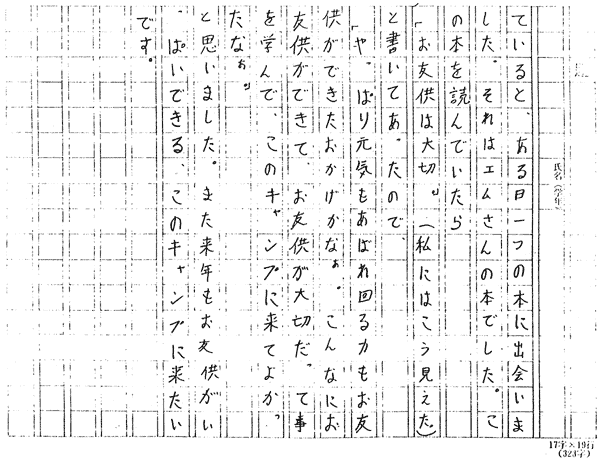 ていると、ある日一つの本に出会いま
した。それはエムさんの本でした。こ
の本を読んでいたら
「お友供は大切。」(私にはこう見えた)
と書いてあったので、
「やっぱり元気もあばれ回る力もお友
供ができたおかげかなぁ。こんなにお
友供ができて、お友供が大切だって事
を学んで、このキャンプに来てよかっ
たなぁ」
と思いました。また来年もお友供がい
っぱいできる、このキャンプに来たい
です。
氏名(学年)
17字×19行
(323字)